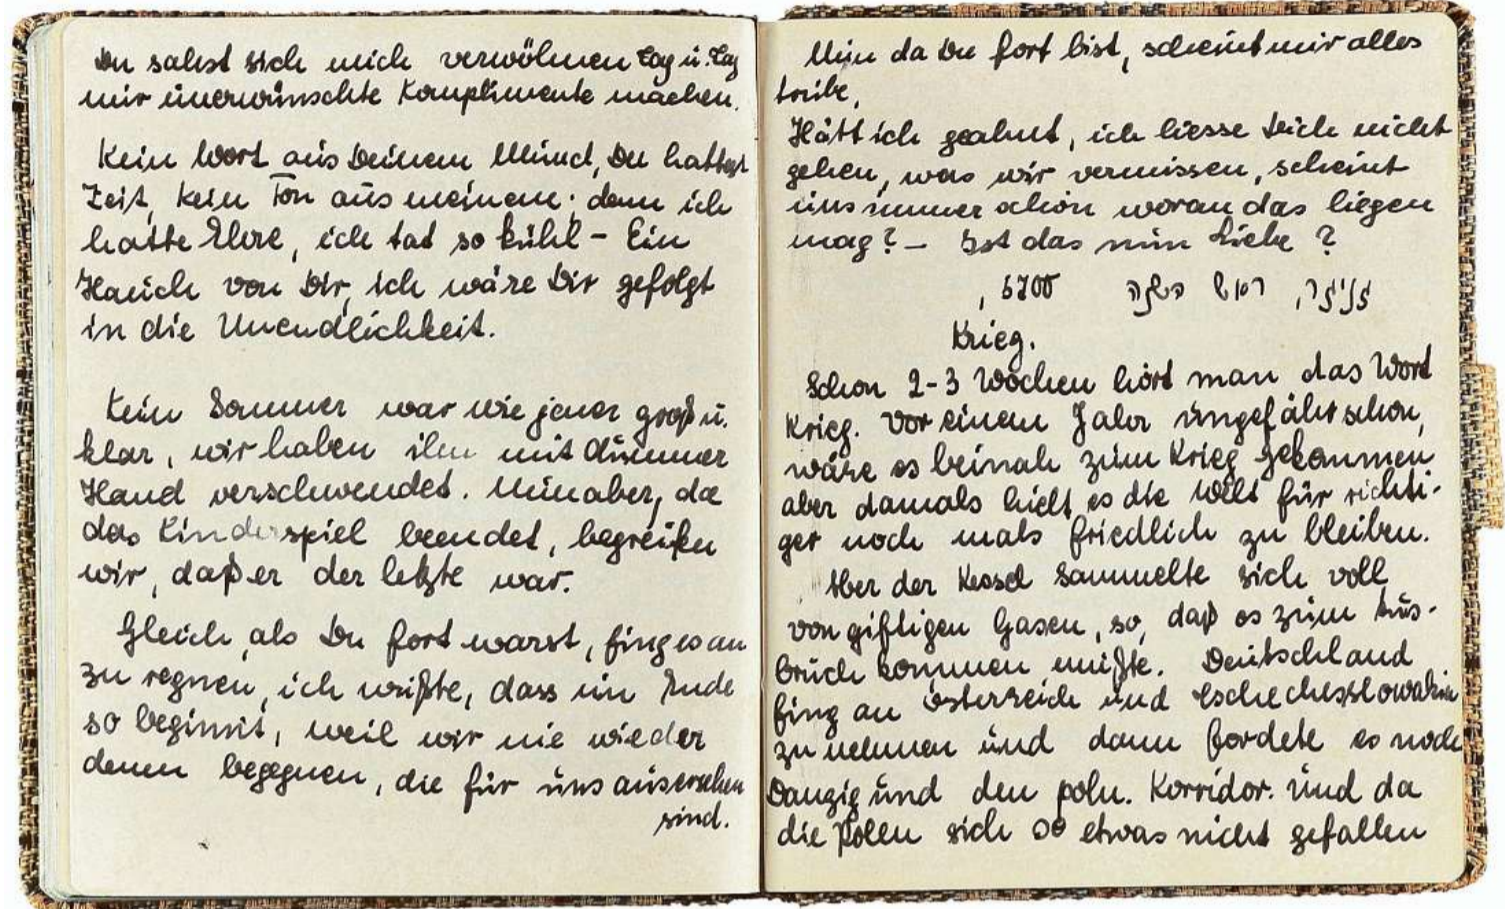 Du sahst sich mich verwöhnen Tag u. Tag
mir unerwünschte Komplimente machen.
Kein Wort aus Deinem Mund, Du hattest
Zeit, kein Ton aus meinem; denn ich
hatte Ehre, ich tat so kühl – Ein
Hauch von Dir, ich wäre Dir gefolgt
in die Unendlichkeit.
Kein Sommer war wie jener groß u.
klar, wir haben ihn mit dummer
Hand verschwendet. Nun aber, da
das Kinderspiel beendet, begreifen
wir, daß er der letzte war.
Gleich, als Du fort warst, fing es an
zu regnen, ich wußte, dass ein Ende
so beginnt, weil wir nie wieder
denen begegnen, die für uns ausersehen
sind.
Nun da Du fort bist, scheint mir alles
trübe,
Hätt ich geahnt, ich liesse Dich nicht
gehen, was wir vermissen, scheint
uns immer schön woran das liegen
mag? – Ist das nun Liebe?
5700
Krieg.
Schon 2-3 Wochen hört man das Wort
Krieg. Vor einem Jahr ungefähr schon,
wäre es beinah zum Krieg gekommen
aber damals hielt es die Welt für richti-
ger noch mals friedlich zu bleiben.
Aber der Kessel sammelte sich voll
von giftigen Gasen, so, daß es zum Aus-
bruch kommen mußte. Deutschland
fing an Österreich und
zu nehmen und dann fordete es noch
Danzig und den poln. Korridor. Und da
die Polen sich so etwas nicht gefallen